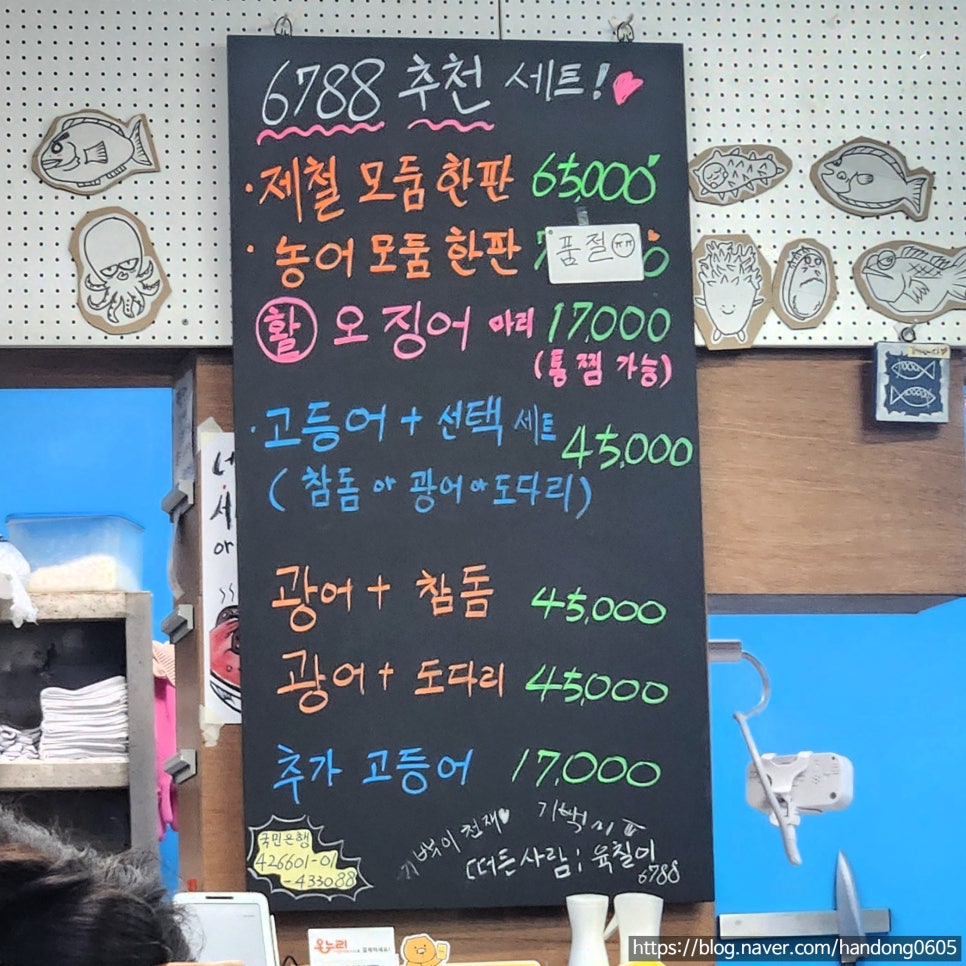 6788 추천 세트!
· 제철 모둠 한판 65,000
· 농어 모둠 한판
품절
활 오징어 마리 17,000
(통찜 가능)
· 고등어 + 선택 세트 45,000
(참돔 or 광어 or 도다리)
광어 + 참돔 45,000
광어 + 도다리 45,000
추가 고등어 17,000
국민은행
426601-01
-433088
천재
떠든사람; 육칠이
6788
온누리
https://blog.naver.com/handong0605